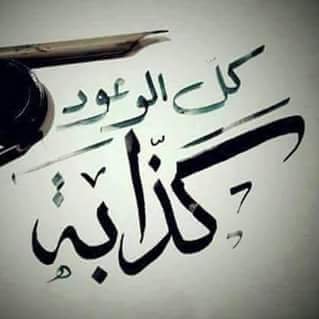 كل الوعود
كذّابة